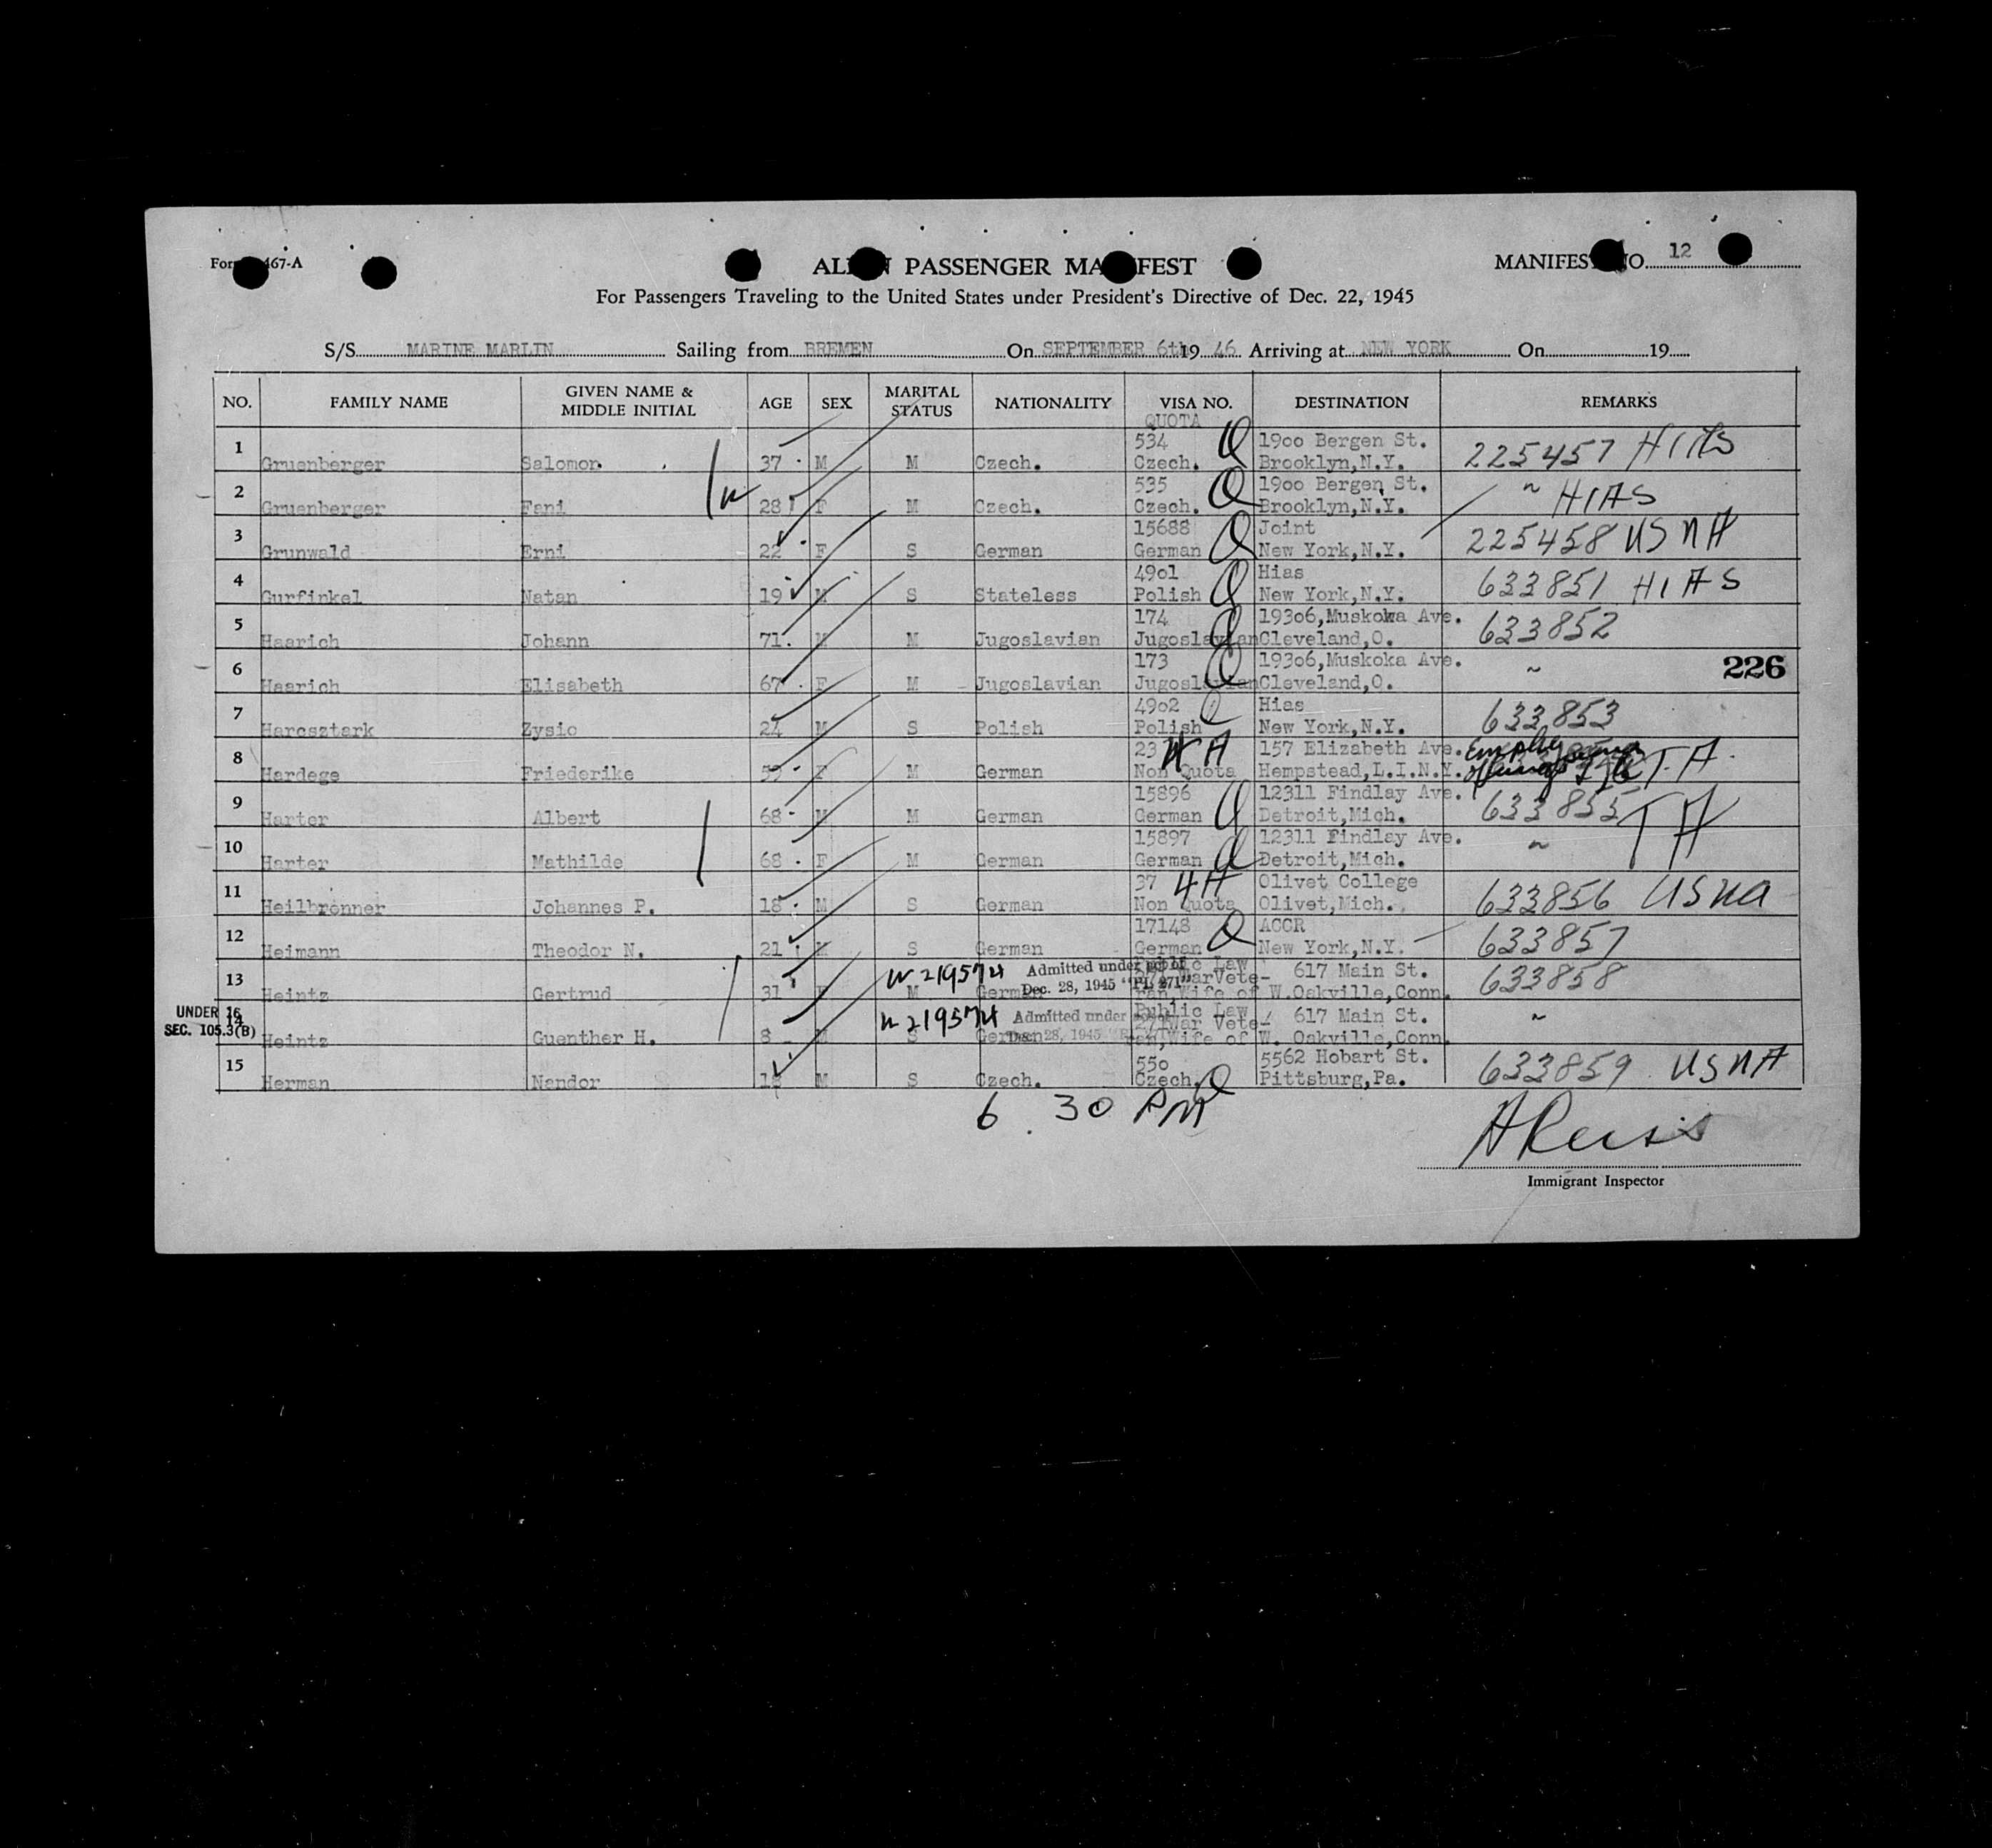 For 467-A
ALIEN PASSENGER MANIFEST
MANIFEST NO. 12
For Passengers Traveling to the United States under President's Directive of Dec. 22, 1945
S/S MARINE MARLIN Sailing from BREMEN On SEPTEMBER 6th 19 46 Arriving at NEW YORK On 19
NO. FAMILY NAME GIVEN NAME & MIDDLE INITIAL AGE SEX MARITAL STATUS NATIONALITY VISA NO. DESTINATION REMARKS
QUOTA
1 534 Q 1900 Bergen St. 225457 HIAS
Gruenberger Salomon 37 M M Czech. Czech. Brooklyn,N.Y.
2 535 Q 1900 Bergen St. ~ HIAS
Gruenberger Fani 28 F M Czech. Czech. Brooklyn,N.Y.
3 15688 Q Joint 225458 USNA
Grunwald Erni 22 F S German German New York,N.Y.
4 4901 Q Hias 633851 HIAS
Gurfinkel Natan 19 M S Stateless Polish New York,N.Y.
5 174 Q 19306,Muskoka Ave. 633852
Haarich Johann 71 M M Jugoslavian Jugoslavian Cleveland,O.
6 173 Q 19306,Muskoka Ave. ~ 226
Haarich Elisabeth 67 F M Jugoslavian Jugoslavian Cleveland,O.
7 4902 Q Hias 633853
Harcsztark Zysio 24 M S Polish Polish New York,N.Y.
8 23 4A 157 Elizabeth Ave. T.A.
Hardege Friederike 59 F M German Non Quota Hempstead,L.I.N.Y.
9 15896 Q 12311 Findlay Ave. 633855 TA
Harter Albert 68 M M German German Detroit,Mich.
10 15897 Q 12311 Findlay Ave. ~
Harter Mathilde 68 F M German German Detroit,Mich.
11 37 4A Olivet College 633856 USNA
Heilbronner Johannes P. 18 M S German Non Quota Olivet,Mich.
12 17148 Q ACCR 633857
Heimann Theodor N. 21 M S German German New York,N.Y.
13 219574 Admitted under act of Public Law 617 Main St. 633858
Dec. 28, 1945 "PL 271" War Vete-
Heintz Gertrud 31 F M German ran,Wife of W.Oakville,Conn.
UNDER 16
SEC. 105.3(B)
14 219574 Admitted under Public Law 617 Main St. ~
Dec. 28, 1945 271 War Vete-
Heintz Guenther H. 8 M S German ran,Wife of W. Oakville,Conn.
15 550 5562 Hobart St. 633859 USNA
Herman Nandor 18 M S Czech. Czech. Q Pittsburg,Pa.
6.30 PM
A Reiss
Immigrant Inspector